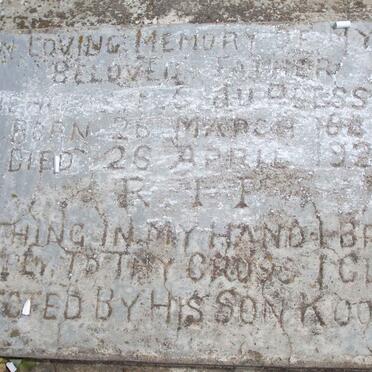 N LOVING MEMORY OF MY
BELOVED FATHER
DU PLESS
BORN 26 MARCH 186
DIED 26 APRIL 192
R I P
THING IN MY HAND I BR
TO THY CROSS I CL
CTED BY HIS SON KOO